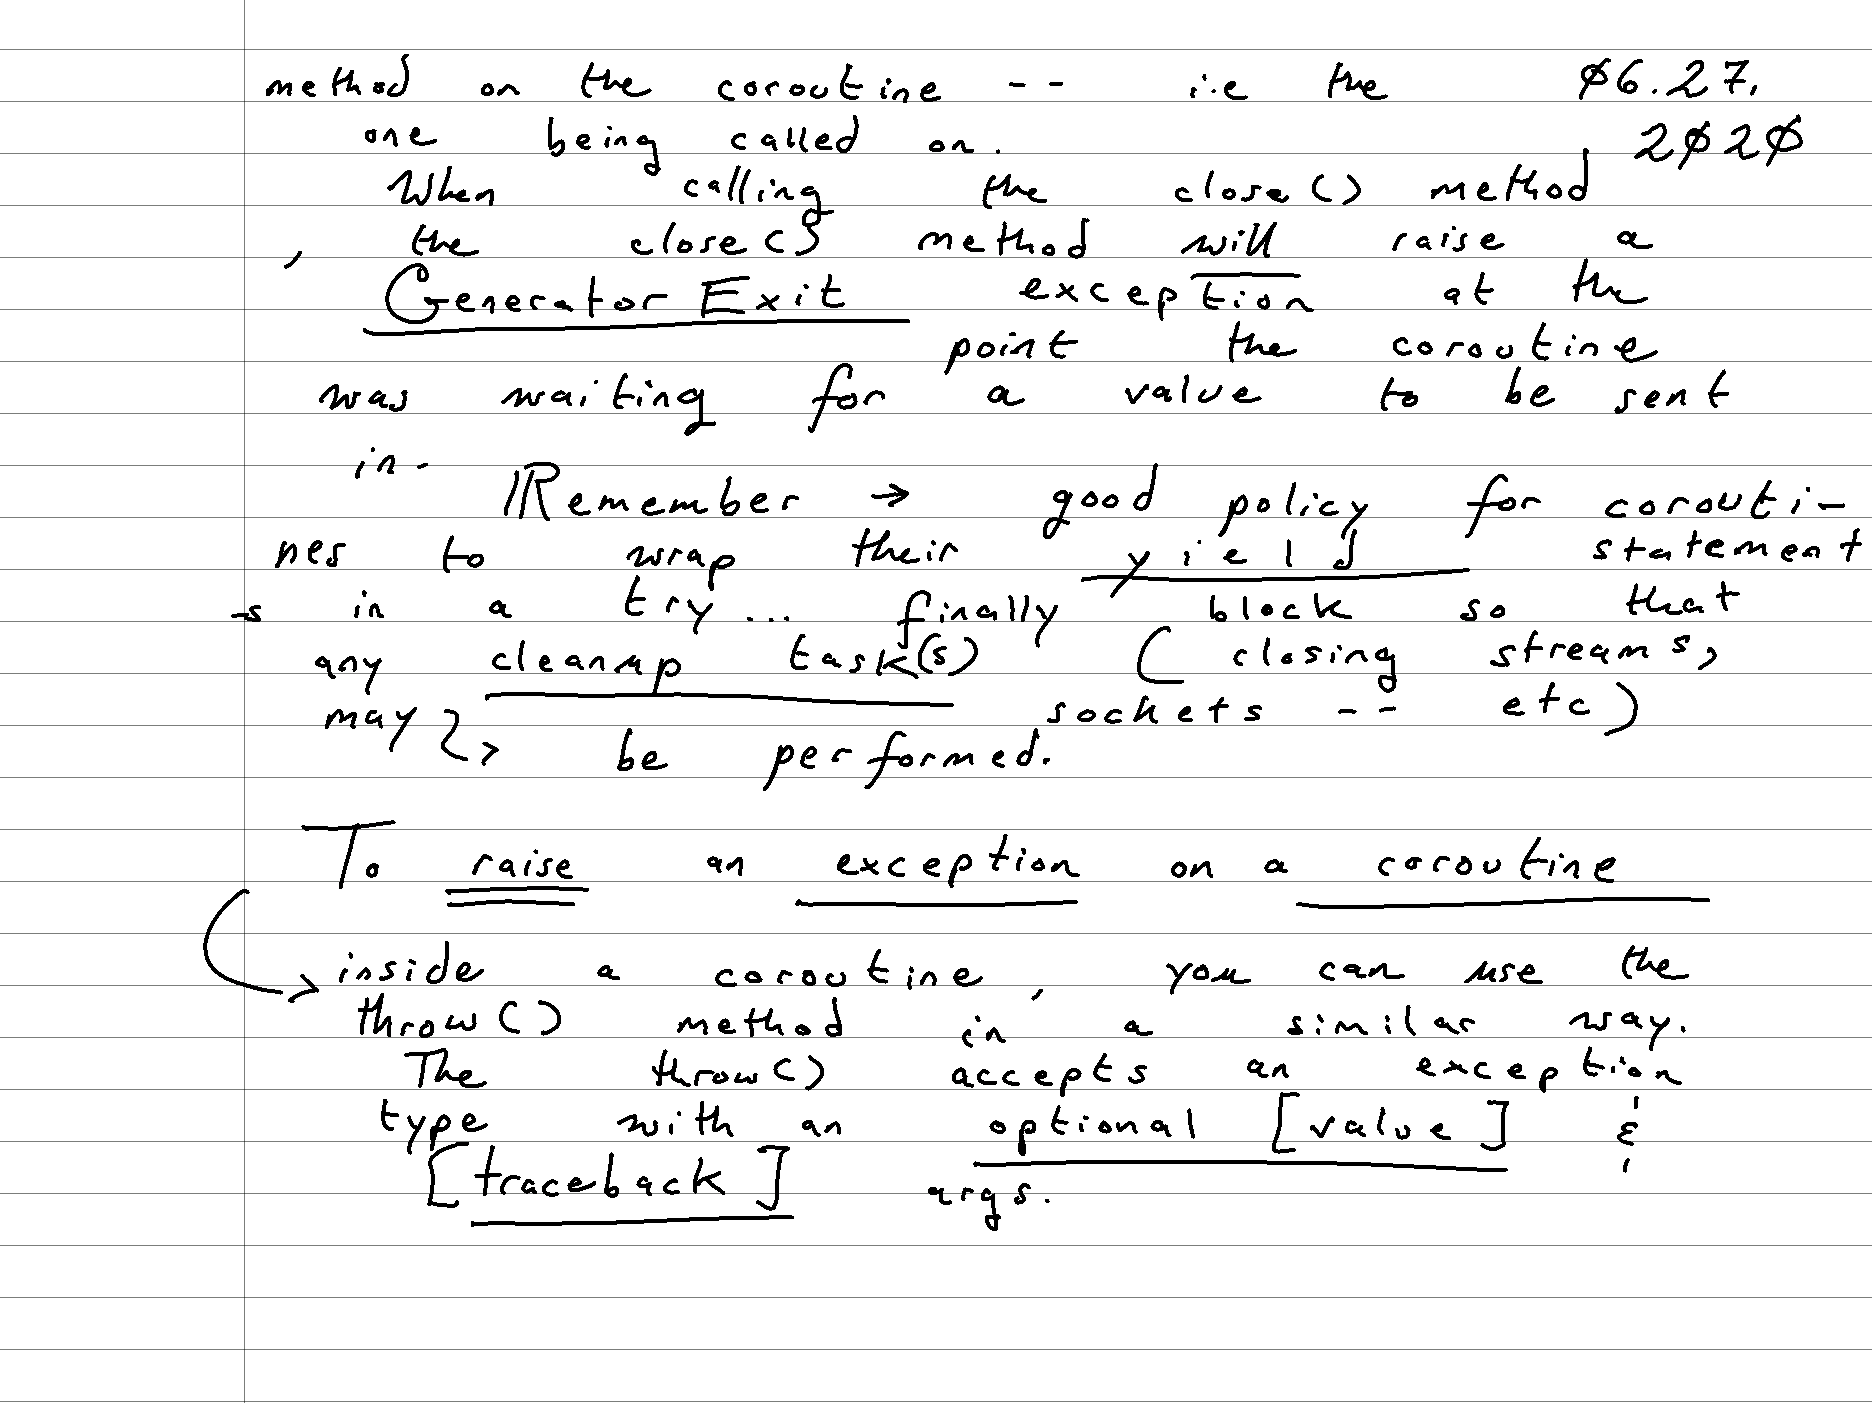 method on the coroutine -- i.e the
Ø6.27.
2Ø2Ø
one being called on.
When calling the close() method
, the close() method will raise a
GeneratorExit exception at the
point the coroutine
was waiting for a value to be sent
in.
Remember → good policy for corouti-
nes to wrap their yield statement
-s in a try... finally block so that
any cleanup task(s) (closing streams,
may sockets -- etc)
be performed.
To raise an exception on a coroutine
inside a coroutine, you can use the
throw() method in a similar way.
The throw() accepts an exception
type with an optional [value] &
[traceback] args.